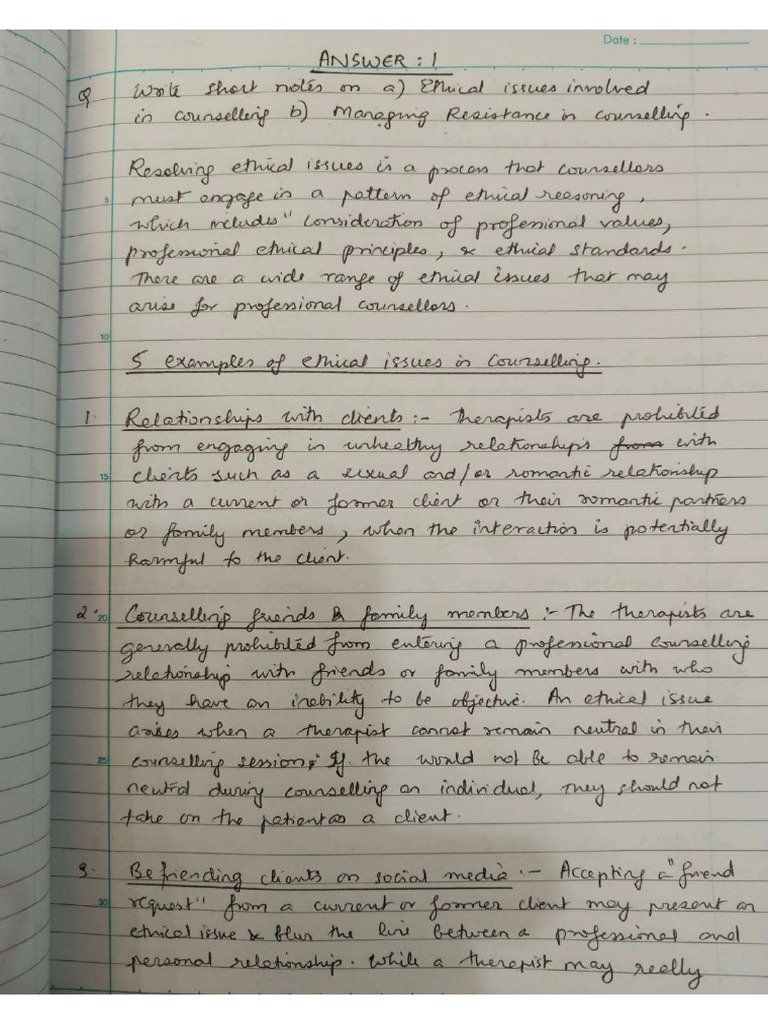 Date :
ANSWER : 1
Q Write short notes on a) Ethical issues involved
in counselling b) Managing Resistance in counselling.
Resolving ethical issues is a process that counsellors
5 must engage in a pattern of ethical reasoning,
which includes " consideration of professional values,
professional ethical principles, & ethical standards.
There are a wide range of ethical issues that may
arise for professional counsellors.
10
5 examples of ethical issues in Counselling.
1. Relationships with clients :- Therapists are prohibited
from engaging in unhealthy relationships from with
15 clients such as a sexual and/or romantic relationship
with a current or former client or their romantic partners
or family members, when the interaction is potentially
harmful to the client.
2. 20 Counselling friends & family members :- The therapists are
generally prohibited from entering a professional counselling
relationship with friends or family members with who
they have an inability to be objective. An ethical issue
arises when a therapist cannot remain neutral in their
25 counselling session; If the would not be able to remain
neutral during counselling an individual, they should not
take on the patient as a client.
3. Befriending clients on social media :- Accepting a "friend
30 request" from a current or former client may present an
ethical issue & blur the line between a professional and
personal relationship. While a therapist may really